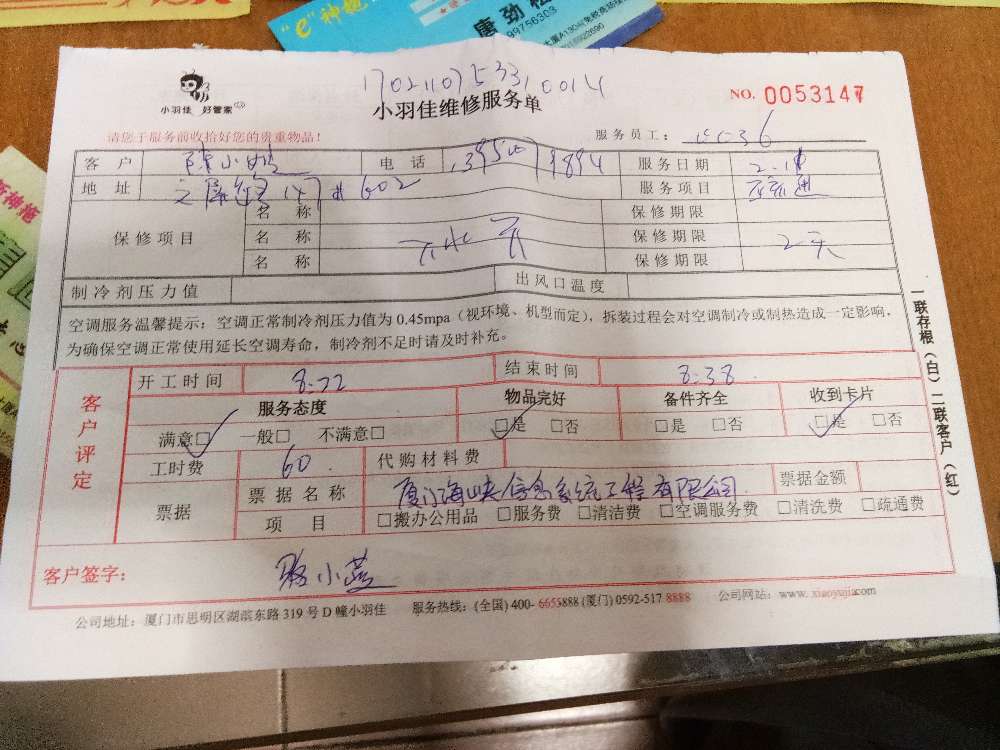 "e"神拖
唐劲松
99756303
1702110753310014
小羽佳 好管家
小羽佳维修服务单
NO. 0053147
请您于服务前收拾好您的贵重物品!
服务员工:
客户 陈小姐 电话 服务日期
地址 602 服务项目
保修项目 名称 保修期限
名称 保修期限 2天
名称 保修期限
制冷剂压力值 出风口温度
空调服务温馨提示:空调正常制冷剂压力值为 0.45mpa(视环境、机型而定),拆装过程会对空调制冷或制热造成一定影响,
为确保空调正常使用延长空调寿命,制冷剂不足时请及时补充。
一联存根(白)二联客户(红)
客户评定
开工时间 8:22 结束时间 8:38
服务态度 物品完好 备件齐全 收到卡片
满意□ 一般□ 不满意□ □是 □否 □是 □否 □是 □否
工时费 60 代购材料费
票据 票据名称 厦门海峡信息系统工程有限公司 票据金额
项目 □搬办公用品 □服务费 □清洁费 □空调服务费 □清洗费 □疏通费
客户签字:
公司地址:厦门市思明区湖滨东路 319 号 D 幢小羽佳 服务热线:(全国) 400-6655888 (厦门) 0592-517 8888 公司网站:www.xiaoyujia.com